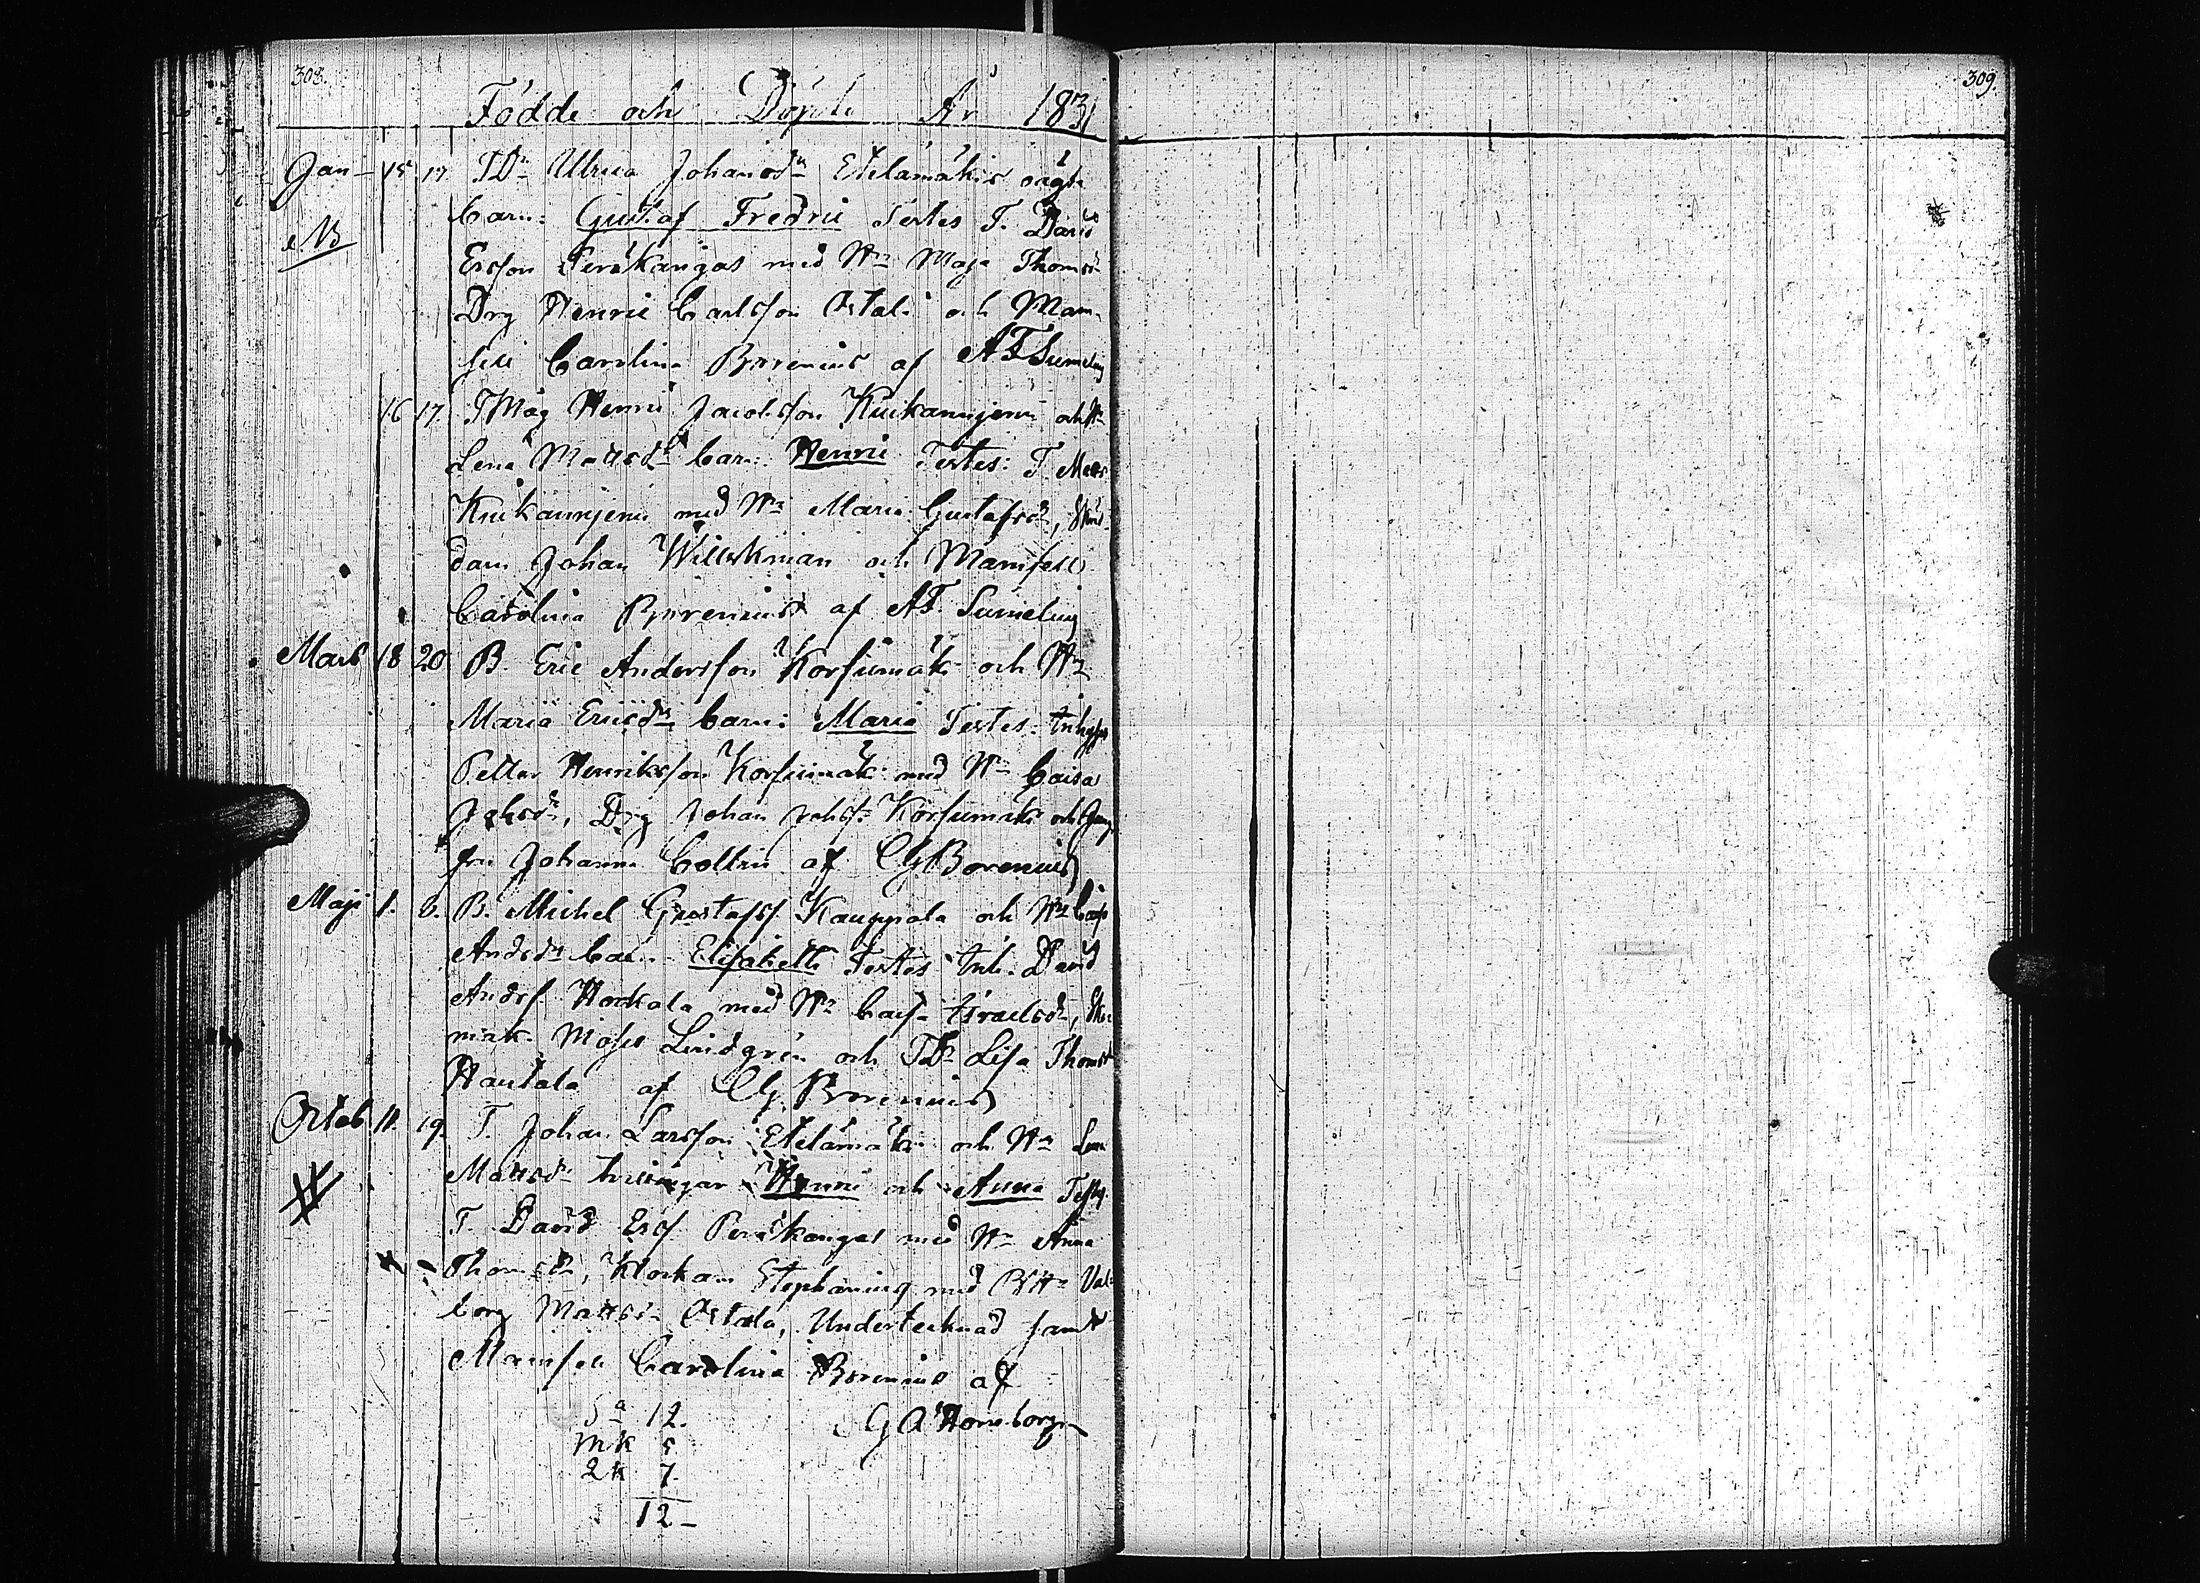 308.
309.
Födde och Döpte År 1831
Jan 15 17. TDr Ulrica Johansdr Etelämäkis oägta
NB barn: Gustaf Fredric Testes T. David
Ersson Peräkangas med Hu Maja Thomsdr
Drg Henric Carlsson Ostala och Mam-
sell Carolina Borenius af AF Sumelius
16 17. TMåg Henric Jacobsson och Hu
Lena Mattsdr barn: Henric Testes: T. Matts
med Hu Maria Gustafsdr,
Johan och Mamsell
Carolina Borenius af AF. Sumelius
Mars 18 20 B. Eric Andersson Korsumäki och Hu
Maria Ericsdr barn: Maria Testes: Inhyses
Petter Henriksson Korsumäki med Hu Caisa
Johsdr, Drg Johan Johss. Korsumäki och Jung-
fru Johanna af CG Borenius
Maji 1. 6. B. Michel Gustafss Kauppala och Hu Caisa
Andsdr barn Elisabetha Testes Inh. David
Andss. Honkala med Hu Caisa Israelsdr, Sko-
mak. Moses Lindgrén och TDr Lisa Thomsdr
Hautala af CG Borenius
Octob 11. 19. T. Johan Larsson Etelämäki och Hu Lena
Mattsdr tvillingar Henric och Anna Testes
T. David Erss. Peräkangas med Hu Anna
Thomsdr, Klockarn Stephanius med BHu Val-
borg Mattsdr Ostala, Undertecknad samt
Mamsell Carolina Borenius af
Sa 12. G A Homsborg
Mk 5
Qk 7.
12